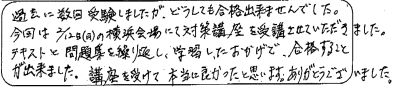 過去に数回受験しましたが、どうしても合格出来ませんでした。
今回は2/12(日)の横浜会場にて対策講座を受講させていただきました。
テキストと問題集を繰り返し、学習したおかげで、合格すること
が出来ました。講座を受けて本当に良かったと思います。ありがとうございました。